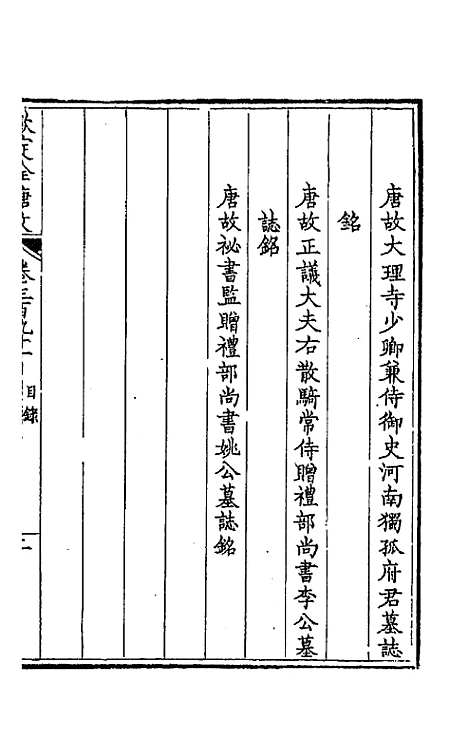 唐故大理寺少卿兼侍御史河南獨孤府君墓誌
銘
唐故正議大夫右散騎常侍贈禮部尚書李公墓
誌銘
唐故祕書監贈禮部尚書姚公墓誌銘
欽定全唐文
卷三百九十一
目錄
二